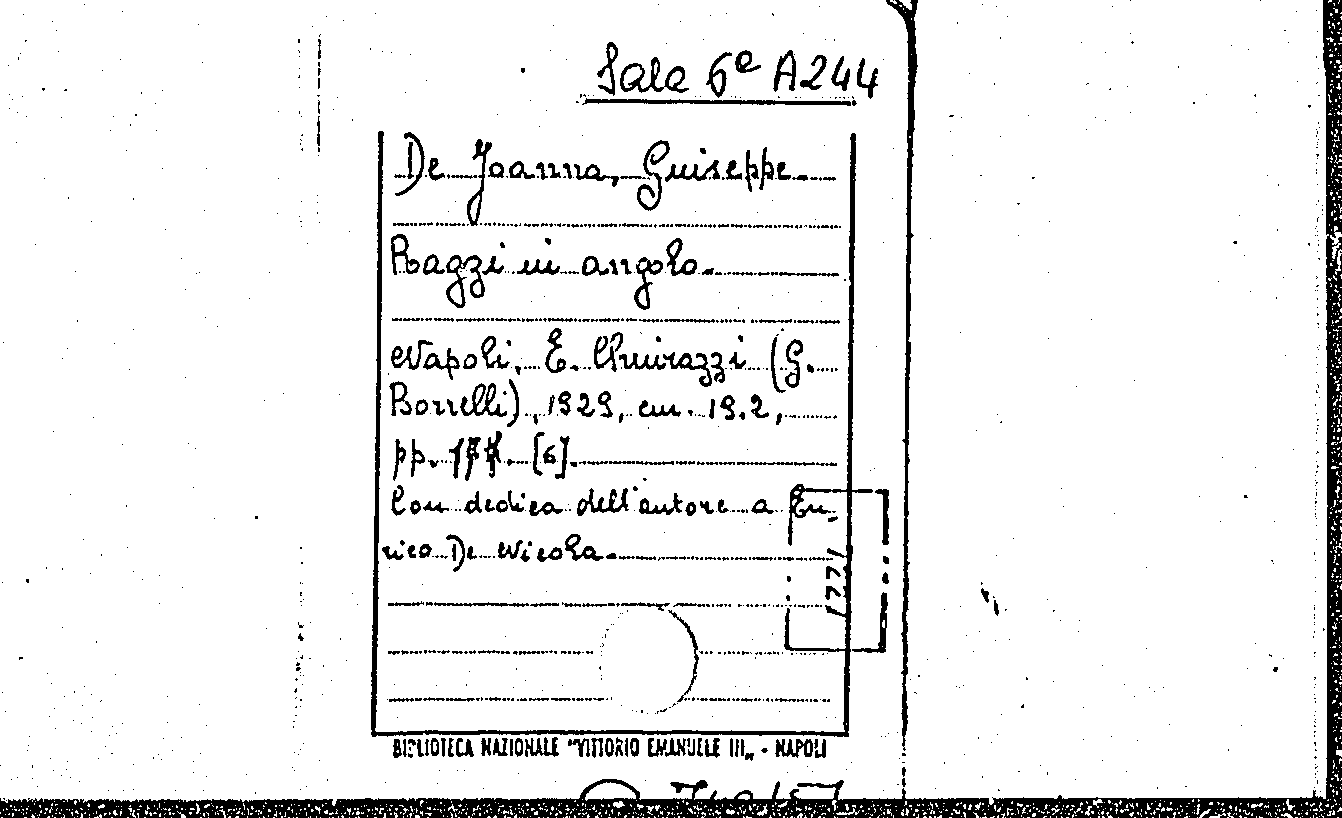 Sala 6ª A244
De Joanna, Giuseppe.
Ragzi in angolo.
Napoli, E. Chiurazzi (G.
Borrelli), 1929, cm. 19.2,
pp. [6].
Con dedica dell'autore a En-
rico De Nicola.
BIBLIOTECA NAZIONALE "VITTORIO EMANUELE III„ - NAPOLI